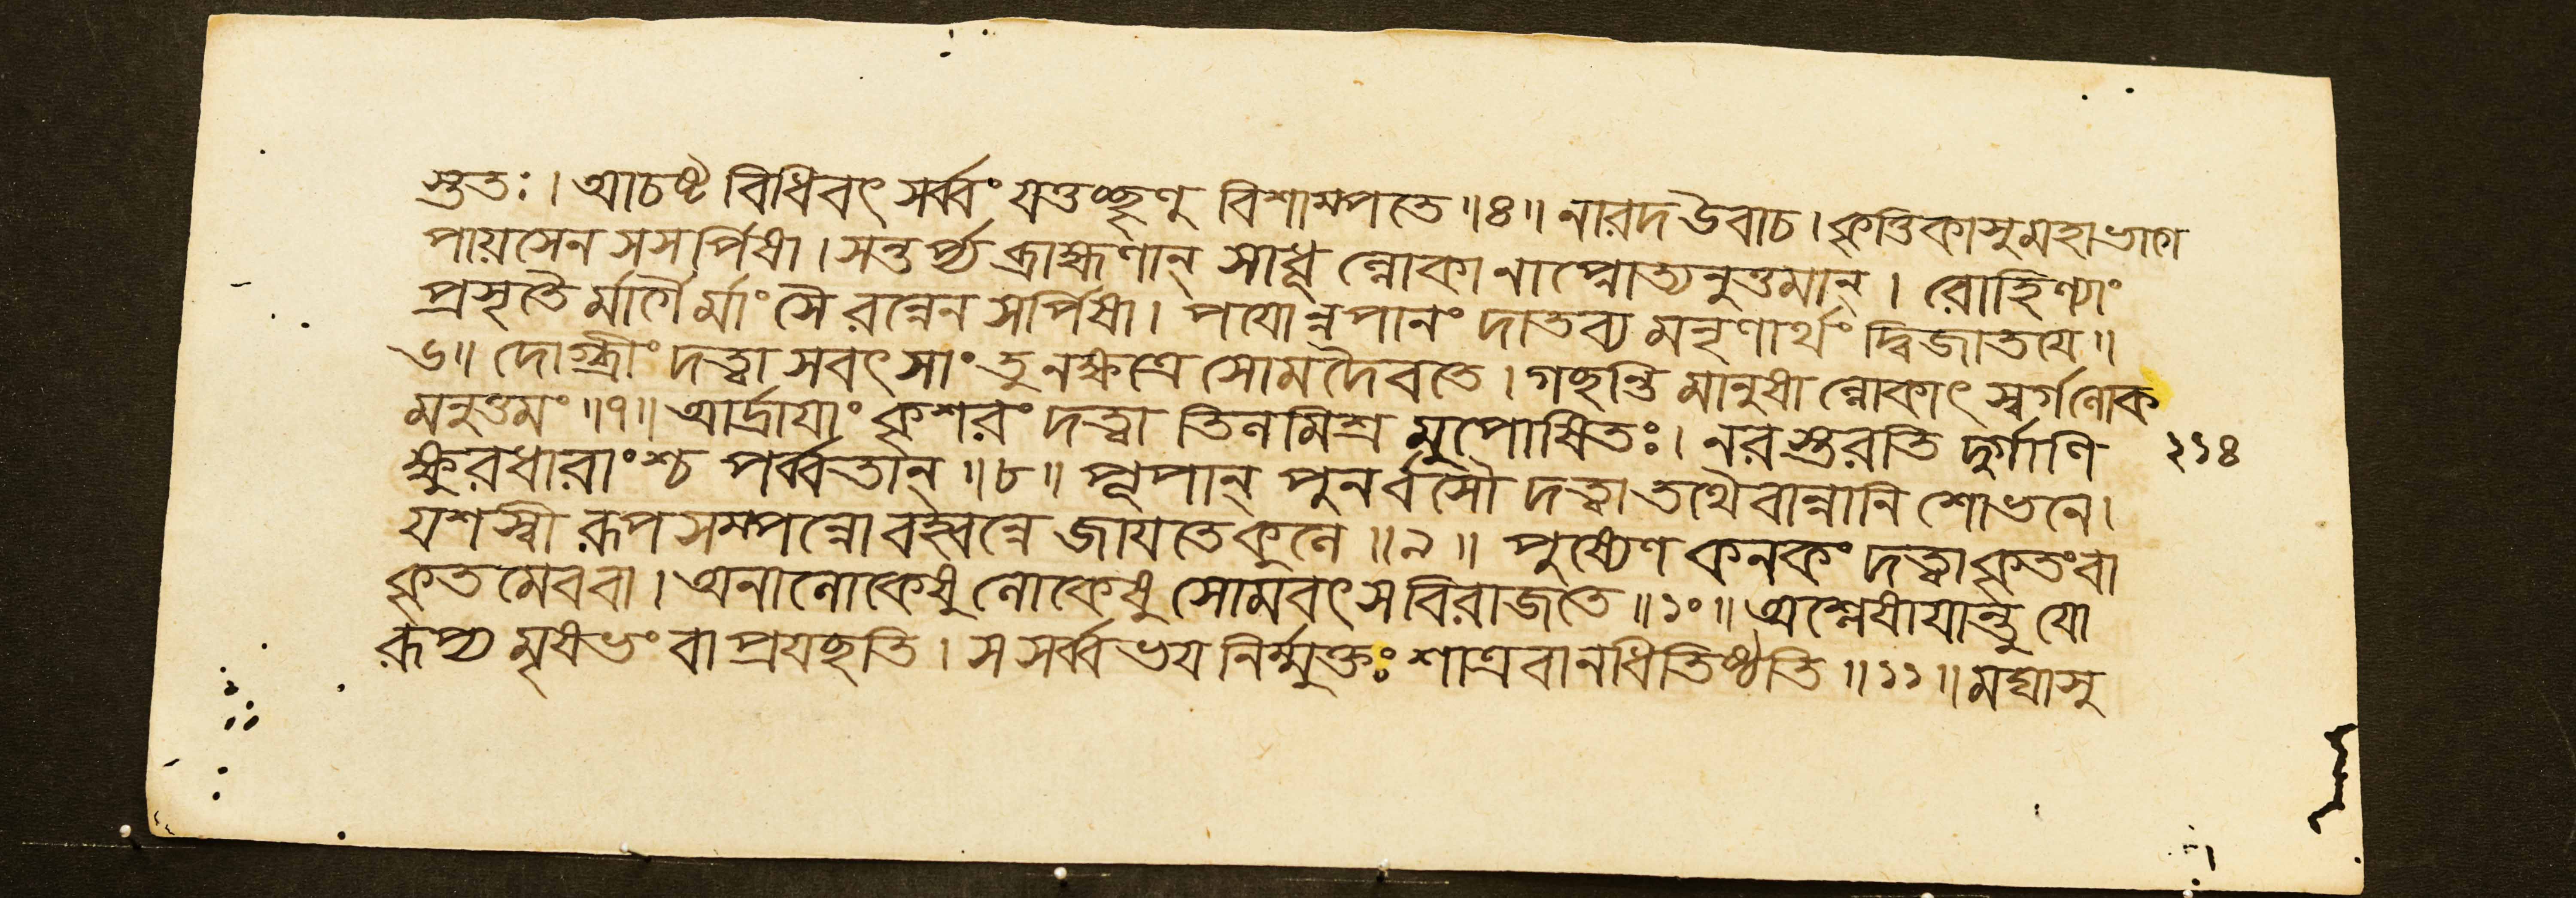 স্তুতঃ। আচষ্ট বিধিবৎ সর্ব্বং যত্তচ্ছৃণু বিশাম্পতে॥৪॥ নারদ উবাচ। কৃত্তিকাসু মহাভাগ
পায়সেন সসর্পিষা। সন্তর্প্য ব্রাহ্মণান্ সাধূ ল্লোকা নাপ্নোত্যনুত্তমান্। রোহিণ্যাং
প্রসৃতৈ র্মার্গৈ র্মাংসৈ রন্নেন সর্পিষা। পযোন্নপানং দাতব্য মনৃণার্থং দ্বিজাতযে॥
৬॥ দোগ্ধ্রীং দত্ত্বা সবৎসাং তু নক্ষত্রে সোমদৈবতে। গচ্ছন্তি মানুষা ল্লোকাৎ স্বর্গলোক
মনুত্তমং॥৭॥ আর্দ্রাযাং কৃশরং দত্ত্বা তিলমিশ্র মুপোষিতঃ। নরস্তরতি দুর্গাণি
২১৪
ক্ষুরধারাংশ্চ পর্ব্বতান্॥৮॥ পূপান্ পুনর্বসৌ দত্ত্বা তথৈবান্নানি শোভনে।
যশস্বী রূপসম্পন্নো বহ্বন্নে জাযতে কুলে॥৯॥ পুষ্যেণ কনকং দত্ত্বা কৃতং বা
কৃত মেব বা। অনালোকেষু লোকেষু সোমবৎ স বিরাজতে॥১০॥ অশ্লেষাযান্তু যো
রূপ্য মৃষভং বা প্রযচ্ছতি। স সর্ব্বভয নির্ম্মুক্তঃ শাত্রবানধিতিষ্ঠতি॥১১॥ মঘাসু